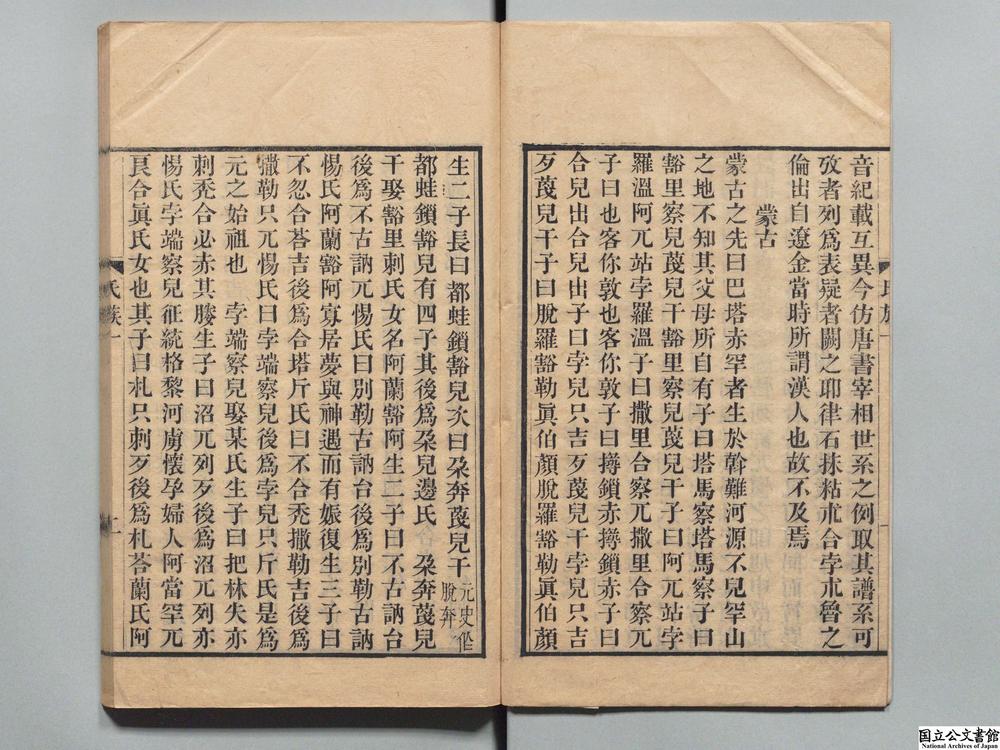 音紀載互異今仿唐書宰相世系之例取其譜系可
攷者列爲表疑者闕之耶律石抹粘朮合孛朮魯之
倫出自遼金當時所謂漢人也故不及焉
蒙古
蒙古之先曰巴塔赤罕者生於斡難河源不兒罕山
之地不知其父母所自有子曰塔馬察塔馬察子曰
豁里察兒蔑兒干豁里察兒蔑兒干子曰阿兀站孛
羅溫阿兀站孛羅溫子曰撒里合察兀撒里合察兀
子曰也客你敦也客你敦子曰撏鎖赤撏鎖赤子曰
合兒出合兒出子曰孛兒只吉歹蔑兒干孛兒只吉
歹蔑兒干子曰脫羅豁勒眞伯顏脫羅豁勒眞伯顏
生二子長曰都蛙鎖豁兒次曰朶奔蔑兒干元史作脫奔
都蛙鎖豁兒有四子其後爲朶兒邊氏　朶奔蔑兒
干娶豁里刺氏女名阿蘭豁阿生二子曰不古訥台
後爲不古訥兀惕氏曰別勒古訥台後爲別勒古訥
惕氏阿蘭豁阿寡居夢與神遇而有娠復生三子曰
不忽合荅吉後爲合塔斤氏曰不合禿撒勒吉後爲
撒勒只兀惕氏曰孛端察兒後爲孛兒只斤氏是爲
元之始祖也　孛端察兒娶某氏生子曰把林失亦
刺禿合必赤其媵生子曰沼兀列歹後爲沼兀列亦
惕氏孛端察兒征統格黎河虜懷孕婦人阿當罕兀
良合眞氏女也其子曰札只刺歹後爲札荅蘭氏阿
氏族一
国立公文書館
National Archives of Japan